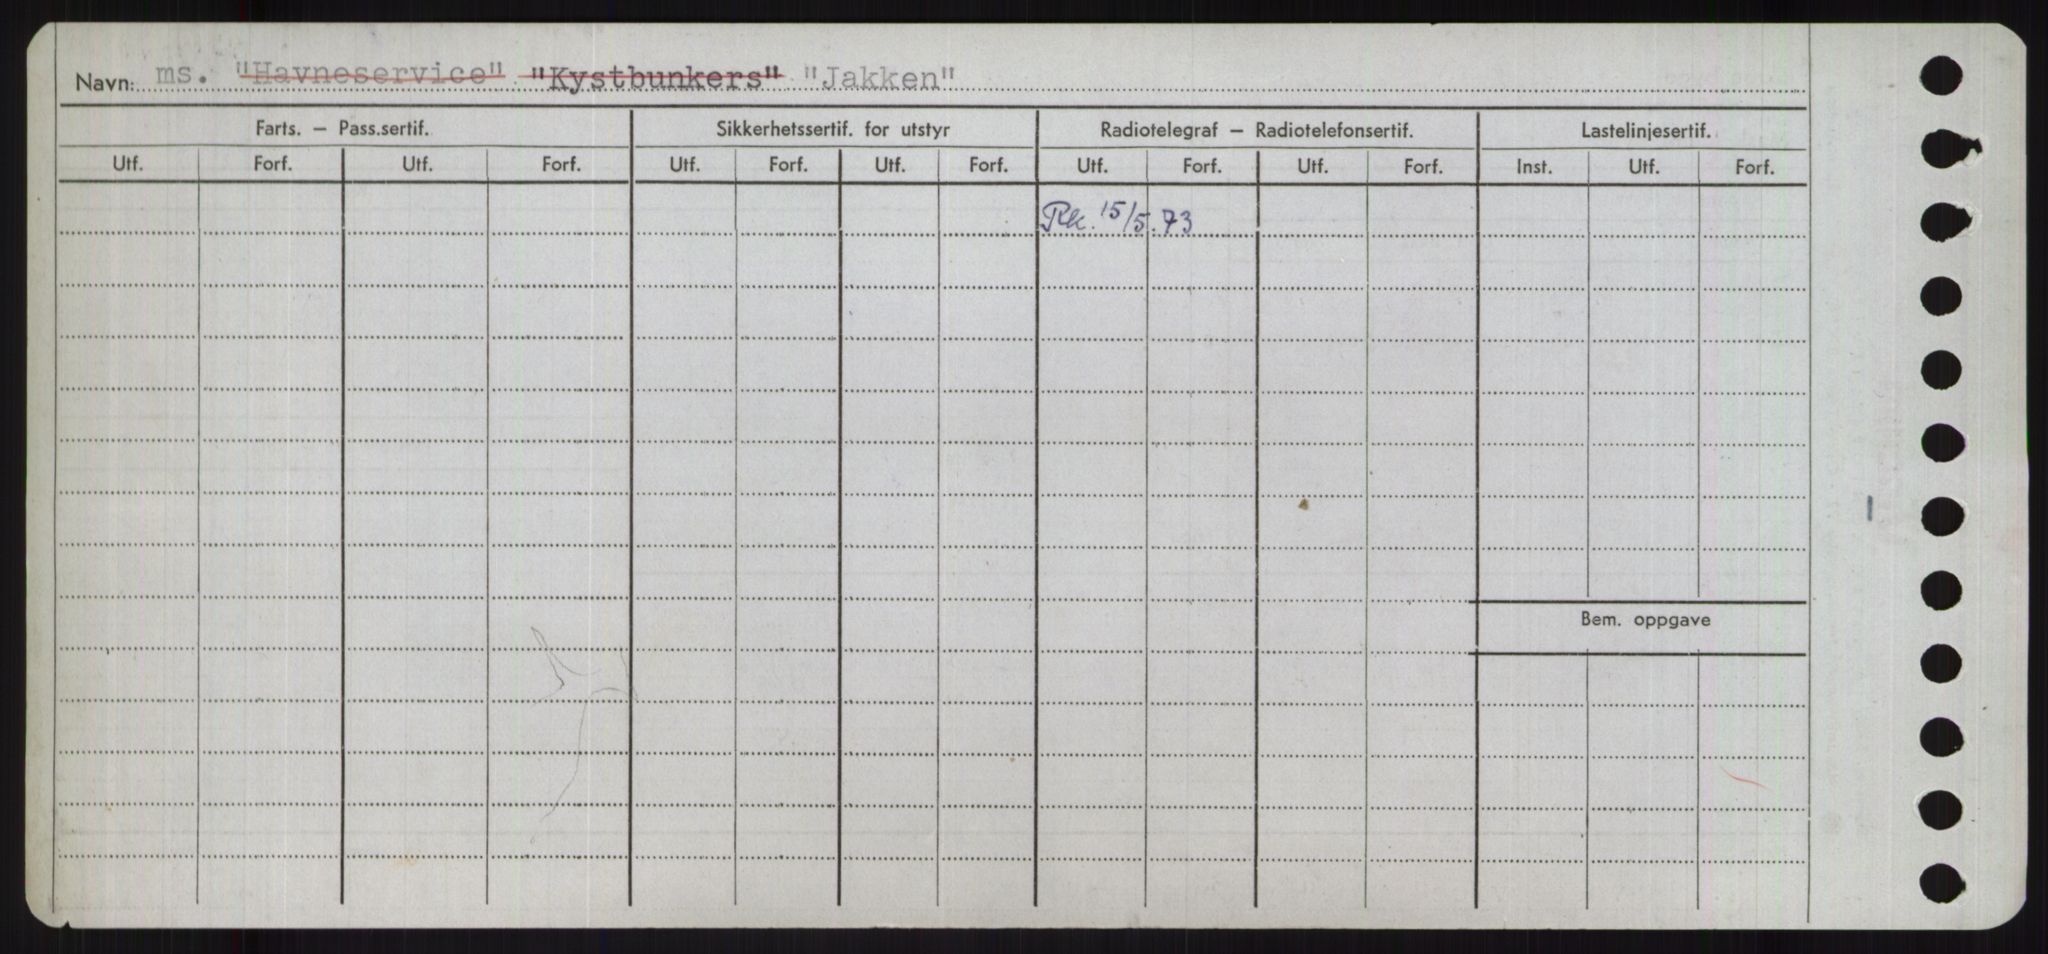 Navn: ms. "Havneservice" "Kystbunkers" "Jakken"
Farts. – Pass.sertif. Sikkerhetssertif. for utstyr Radiotelegraf – Radiotelefonsertif. Lastelinjesertif.
Utf. Forf. Utf. Forf. Utf. Forf. Utf. Forf. Utf. Forf. Utf. Forf. Inst. Utf. Forf.
Rk. 15/5.73
Bem. oppgave